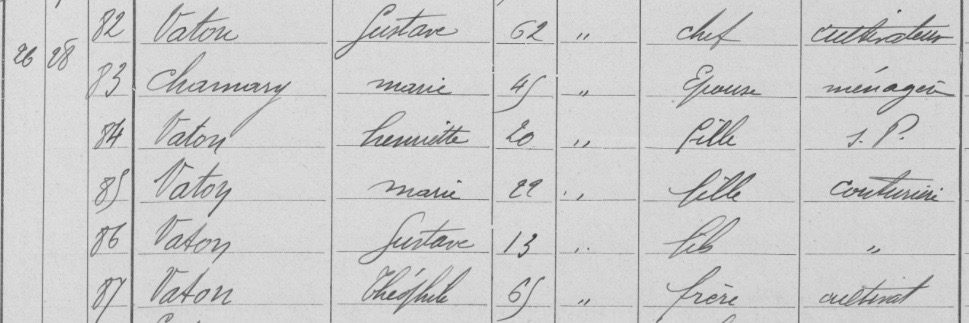 82 Vaton Gustave 62 " chef cultivateur
26 28
83 Chamary marie 45 " Epouse ménagère
84 Vaton henriette 20 " fille s. P.
85 Vaton marie 22 " fille couturière
86 Vaton Gustave 13 " fils "
87 Vaton Théophile 65 " frère cultivat